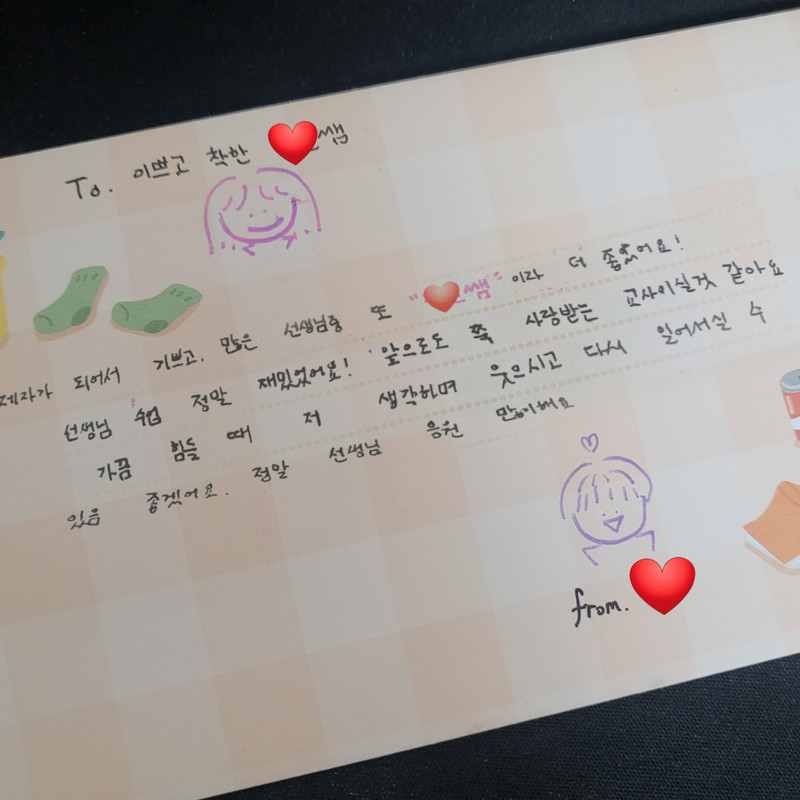 To. 이쁘고 착한 쌤
제자가 되어서 기쁘고, 많은 선생님중 또 " 쌤" 이라 더 좋았어요!
선생님 수업 정말 재밌었어요! 앞으로도 쭉 사랑받는 교사이실것 같아요
가끔 힘들 때 저 생각하며 웃으시고 다시 일어서실 수
있음 좋겠어요. 정말 선생님 응원 많이해요
from.